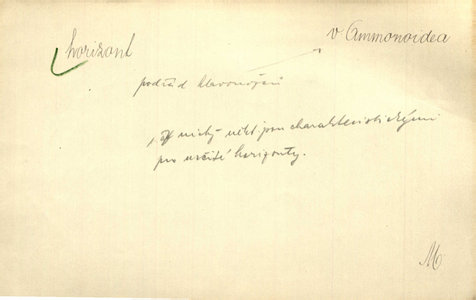 horizont
v Ammonoidea
podřád hlavonožců
nichž něk. jsou charakteristickými
pro určité horizonty.
M